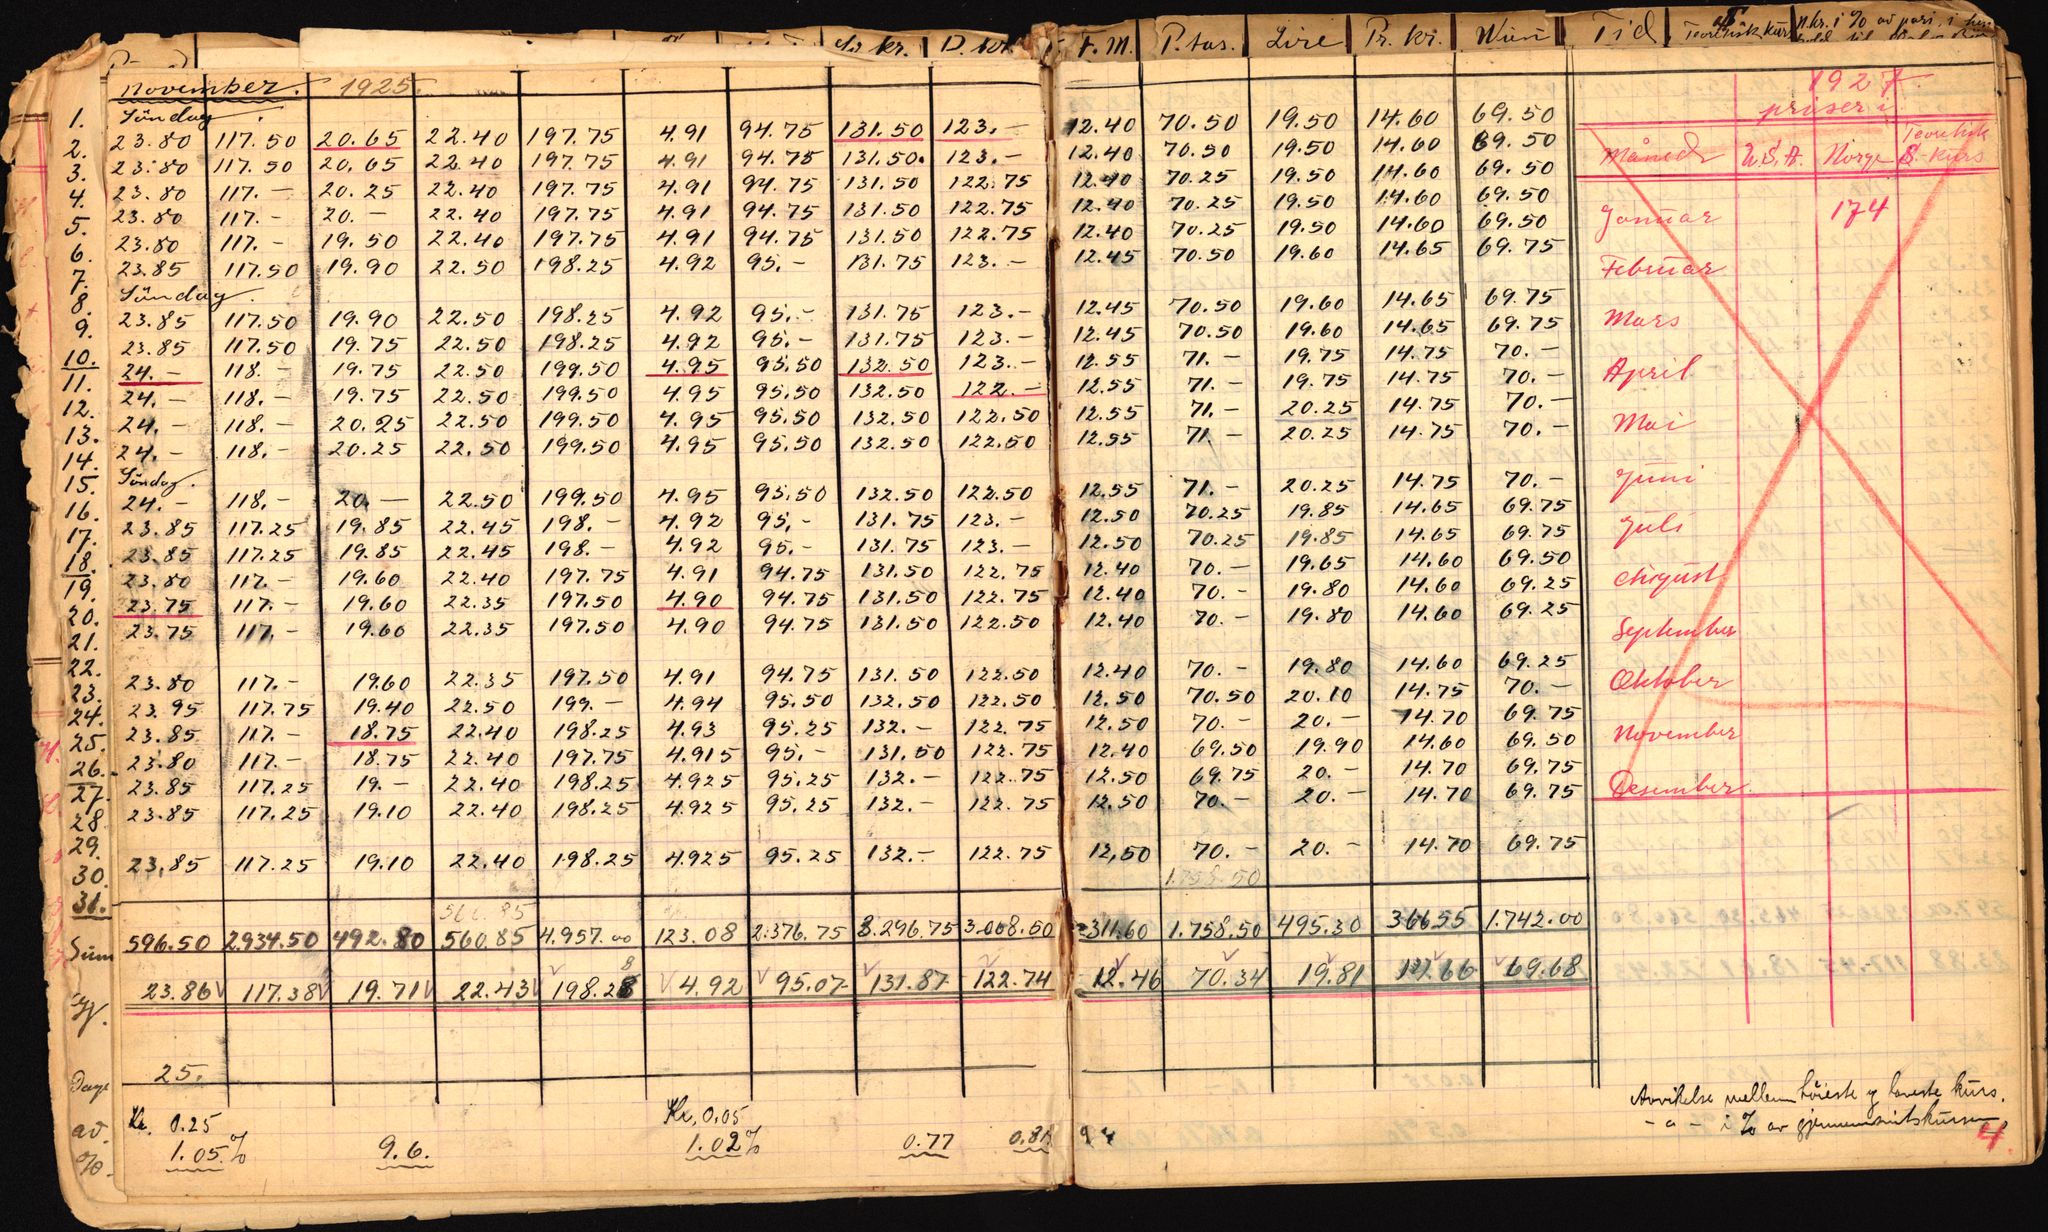 Sv. kr. D. kr. F. M. P.tas. Lire Pr. kr. Wien Tid Teoretisk kurs N.kr. i % av pari i
November. 1925.
1. Söndag.
2. 23.80 117.50 20.65 22.40 197.75 4.91 94.75 131.50 123.- 12.40 70.50 19.50 14.60 69.50
3. 23.80 117.50 20.65 22.40 197.75 4.91 94.75 131.50. 123.- 12.40 70.50 19.50 14.60 69.50
4. 23.80 117.- 20.25 22.40 197.75 4.91 94.75 131.50 122.75 12.40 70.25 19.50 14.60 69.50
5. 23.80 117.- 20.- 22.40 197.75 4.91 94.75 131.50 122.75 12.40 70.25 19.50 14.60 69.50
6. 23.80 117.- 19.50 22.40 197.75 4.91 94.75 131.50 122.75 12.40 70.25 19.50 14.60 69.50
7. 23.85 117.50 19.90 22.50 198.25 4.92 95.- 131.75 123.- 12.45 70.50 19.60 14.65 69.75
8. Söndag.
9. 23.85 117.50 19.90 22.50 198.25 4.92 95.- 131.75 123.- 12.45 70.50 19.60 14.65 69.75
10. 23.85 117.50 19.75 22.50 198.25 4.92 95.- 131.75 123.- 12.45 70.50 19.60 14.65 69.75
11. 24.- 118.- 19.75 22.50 199.50 4.95 95.50 132.50 123.- 12.55 71.- 19.75 14.75 70.-
12. 24.- 118.- 19.75 22.50 199.50 4.95 95.50 132.50 122.- 12.55 71.- 19.75 14.75 70.-
13. 24.- 118.- 20.25 22.50 199.50 4.95 95.50 132.50 122.50 12.55 71.- 20.25 14.75 70.-
14. 24.- 118.- 20.25 22.50 199.50 4.95 95.50 132.50 122.50 12.55 71.- 20.25 14.75 70.-
15. Söndag.
16. 24.- 118.- 20.- 22.50 199.50 4.95 95.50 132.50 122.50 12.55 71.- 20.25 14.75 70.-
17. 23.85 117.25 19.85 22.45 198.- 4.92 95.- 131.75 123.- 12.50 70.25 19.85 14.65 69.75
18. 23.85 117.25 19.85 22.45 198.- 4.92 95.- 131.75 123.- 12.50 70.25 19.85 14.65 69.75
19. 23.80 117.- 19.60 22.40 197.75 4.91 94.75 131.50 122.75 12.40 70.- 19.65 14.60 69.50
20. 23.75 117.- 19.60 22.35 197.50 4.90 94.75 131.50 122.75 12.40 70.- 19.80 14.60 69.25
21. 23.75 117.- 19.60 22.35 197.50 4.90 94.75 131.50 122.50 12.40 70.- 19.80 14.60 69.25
22.
23. 23.80 117.- 19.60 22.35 197.50 4.91 94.75 131.50 122.50 12.40 70.- 19.80 14.60 69.25
24. 23.95 117.75 19.40 22.50 199.- 4.94 95.50 132.50 122.50 12.50 70.50 20.10 14.75 70.-
25. 23.85 117.- 18.75 22.40 198.25 4.93 95.25 132.- 122.75 12.50 70.- 20.- 14.70 69.75
26. 23.80 117.- 18.75 22.40 197.75 4.915 95.- 131.50 122.75 12.40 69.50 19.90 14.60 69.50
27. 23.85 117.25 19.- 22.40 198.25 4.925 95.25 132.- 122.75 12.50 69.75 20.- 14.70 69.75
28. 23.85 117.25 19.10 22.40 198.25 4.925 95.25 132.- 122.75 12.50 70.- 20.- 14.70 69.75
29.
30. 23,85 117.25 19.10 22.40 198.25 4.925 95.25 132.- 122.75 12,50 70.- 20.- 14.70 69.75
31. 1.758.50
560.85
Sum 596.50 2.934.50 492.80 560.85 4.957.00 123.08 2.376.75 3.296.75 3.068.50 311.60 1.758.50 495.30 366.55 1.742.00
Gj. 23.86 117.38 19.71 22.43 198.28 4.92 95.07 131.87 122.74 12.46 70.34 19.81 14.66 69.68
Dage 25.
av. Kr. 0.25 Kr. 0.05
% 1.05% 9.6. 1.02% 0.77
1927.
priser i
Måned U.S.A. Norge Teoretisk $-kurs
Januar 174
Februar
Mars
April
Mai
Juni
Juli
August
September
Oktober
November
Desember.
Avvikelse mellem höieste og laveste kurs.
- " - i % av gjennemsnitskursen
4.